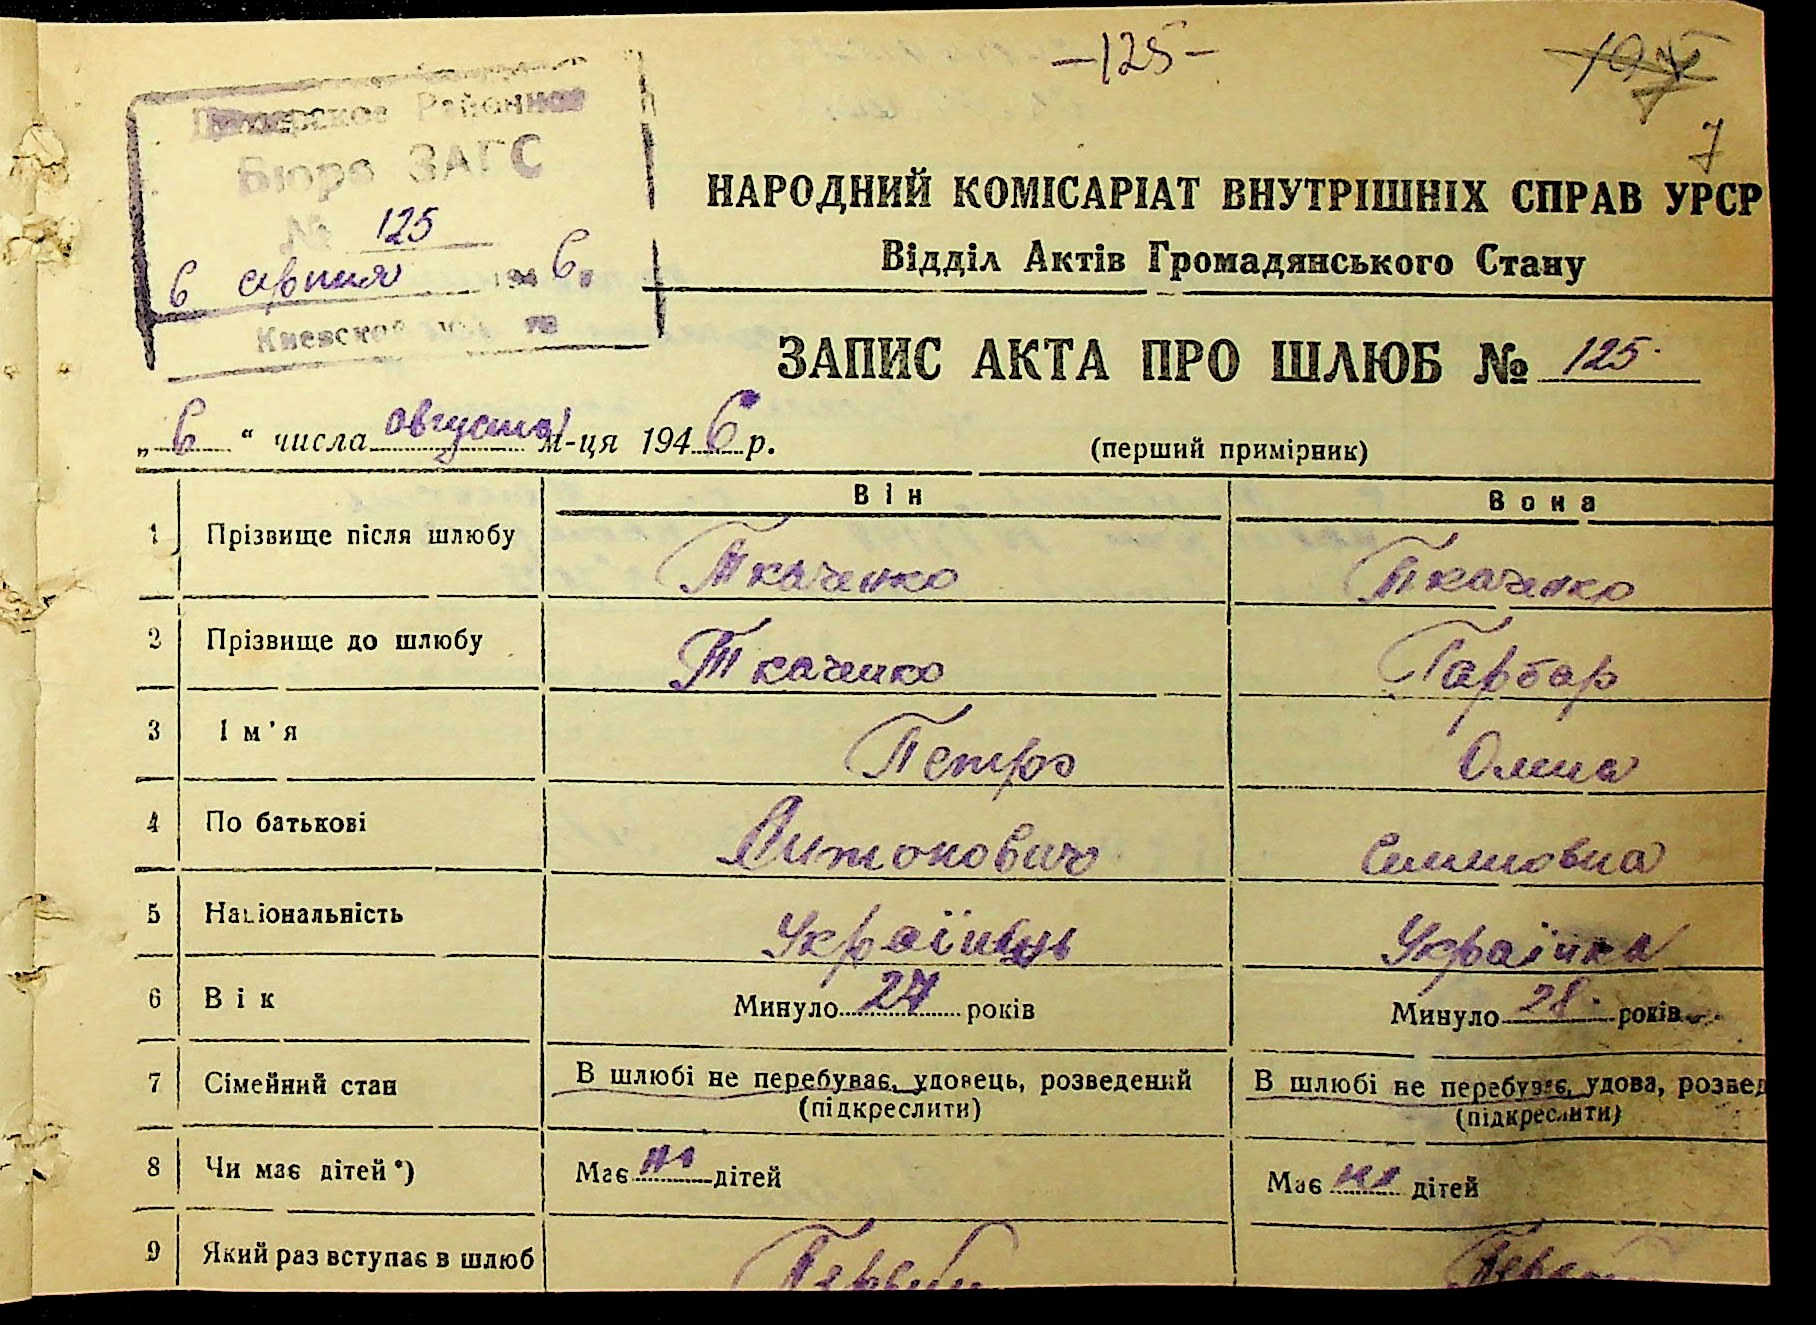 -125-
7
Районное
Бюро ЗАГС
№ 125
6 серпня 1946
НАРОДНИЙ КОМІСАРІАТ ВНУТРІШНІХ СПРАВ УРСР
Відділ Актів Громадянського Стану
ЗАПИС АКТА ПРО ШЛЮБ № 125
„6“ числа августа м-ця 1946 р.
(перший примірник)
Він Вона
1 Прізвище після шлюбу Ткаченко Ткаченко
2 Прізвище до шлюбу Ткаченко Гарбар
3 Ім'я Петро
4 По батькові Антонович
5 Національність Українець Українка
6 Вік Минуло 27 років Минуло 28 років
7 Сімейний стан В шлюбі не перебуває, удовець, розведений В шлюбі не перебуває, удова, розвед
(підкреслити) (підкреслити)
8 Чи має дітей*) Має дітей Має дітей
9 Який раз вступає в шлюб